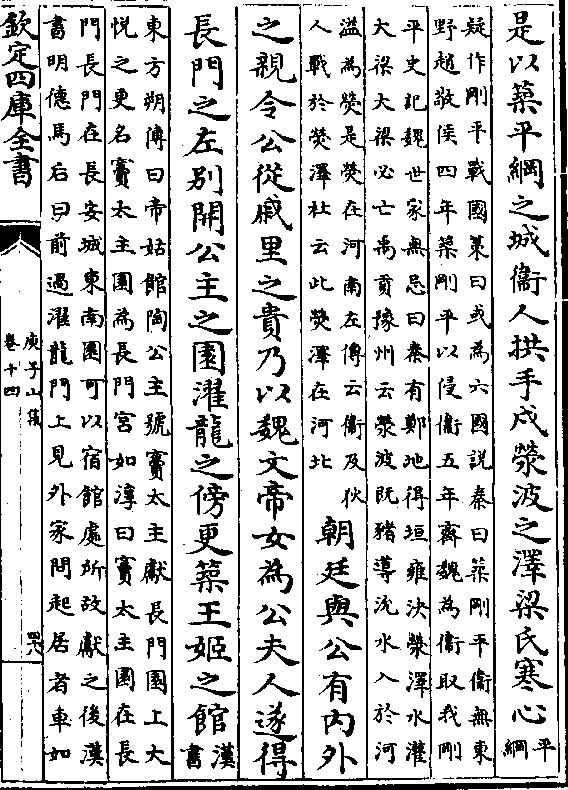 是以築平綱之城衞人拱手戍滎波之澤梁氏寒心平綱
疑作剛平戰國策曰或為六國說秦曰築剛平衞無東
野趙敬侯四年築剛平以侵衞五年齊魏為衞取我剛
平史記魏世家無忌曰秦有鄭地得垣雍決滎澤水灌
大梁大梁必亡禹貢豫州云滎波既豬導沇水入於河
溢為滎是滎在河南左傳云衞及狄
人戰於熒澤杜云此熒澤在河北
朝廷與公有內外
之親令公從戚里之貴乃以魏文帝女為公夫人遂得
長門之左別開公主之園濯龍之傍更築王姬之館漢書
東方朔傳曰帝姑館陶公主號竇太主獻長門園上大
悅之更名竇太主園為長門宮如淳曰竇太主園在長
門長門在長安城東南園可以宿館處所故獻之後漢
書明德馬后曰前過濯龍門上見外家問起居者車如
欽定四庫全書
庾子山集
卷十四
四六